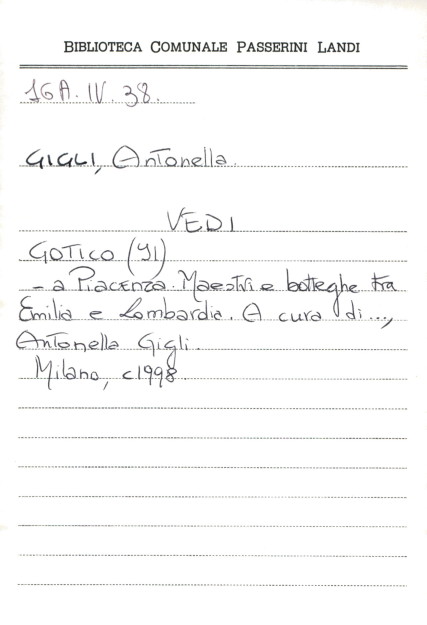 BIBLIOTECA COMUNALE PASSERINI LANDI
16A.IV.38.
GIGLI, Antonella.
VEDI
GOTICO (Il)
- a Piacenza. Maestri e botteghe tra
Emilia e Lombardia. A cura di...,
Antonella Gigli.
Milano, c1998.